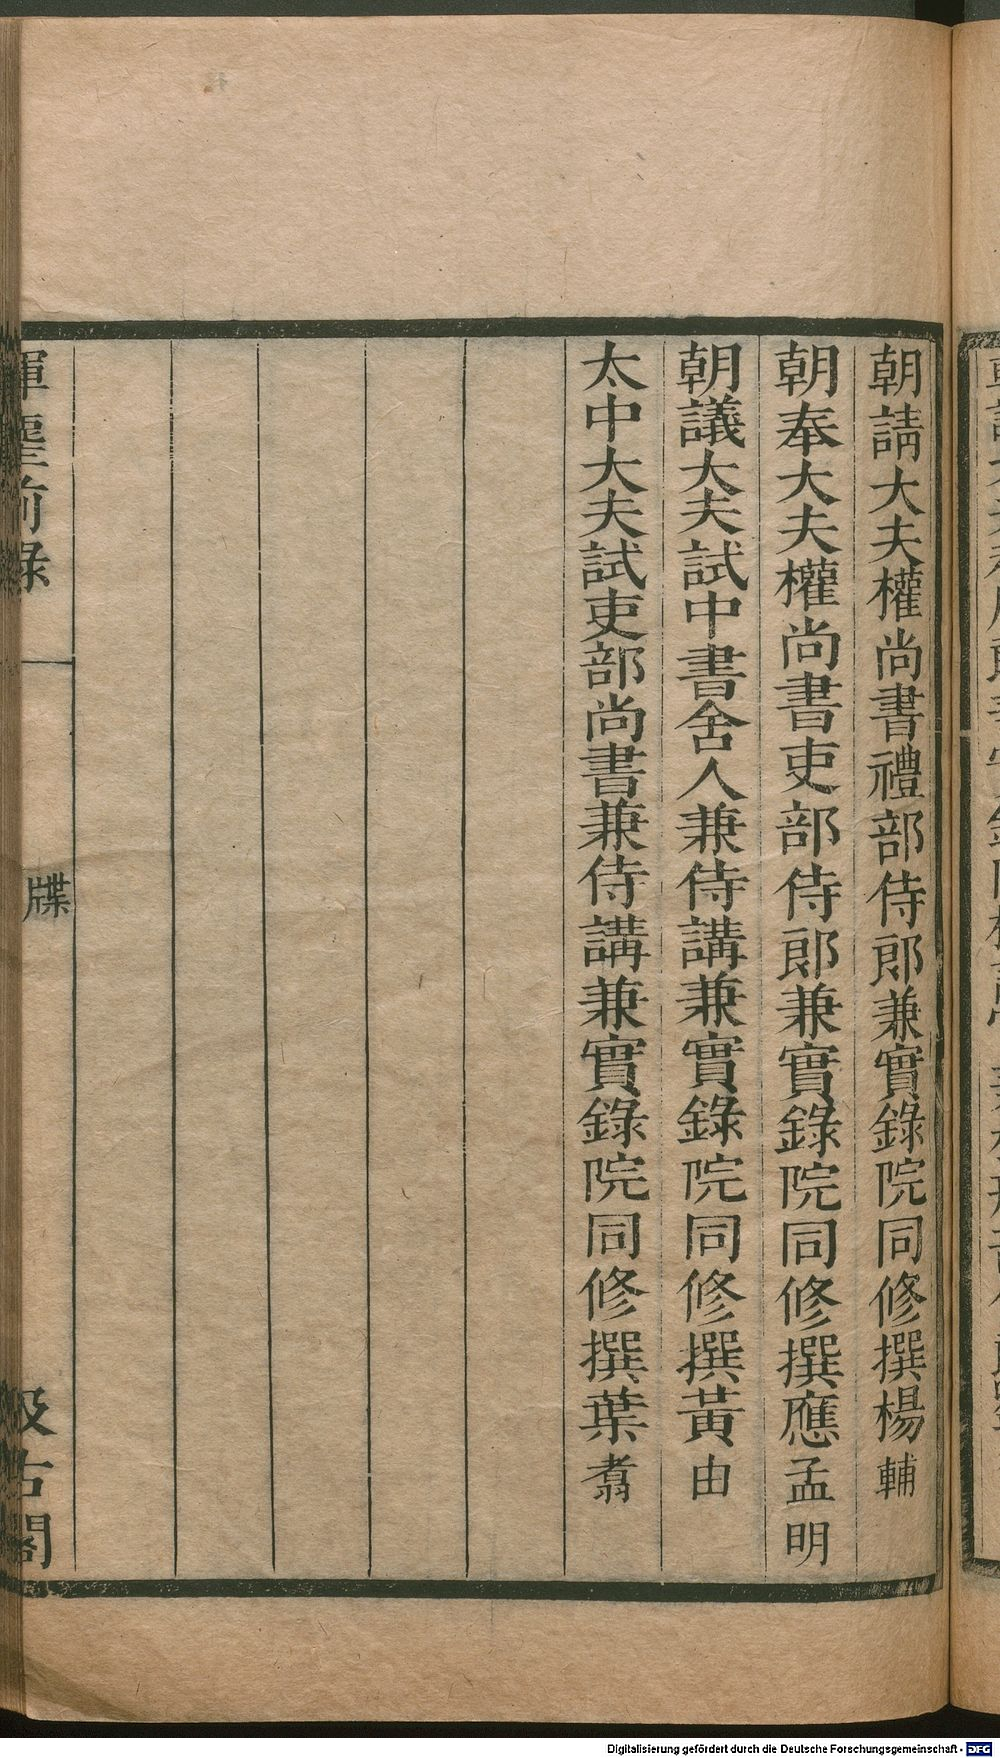 朝請大夫權尚書禮部侍郎兼實錄院同修撰楊輔
朝奉大夫權尚書吏部侍郎兼實錄院同修撰應孟明
朝議大夫試中書舍人兼侍講兼實錄院同修撰黃由
太中大夫試吏部尚書兼侍講兼實錄院同修撰葉翥
揮麈前錄
牒
汲古閣
Digitalisierung gefördert durch die Deutsche Forschungsgemeinschaft - DFG